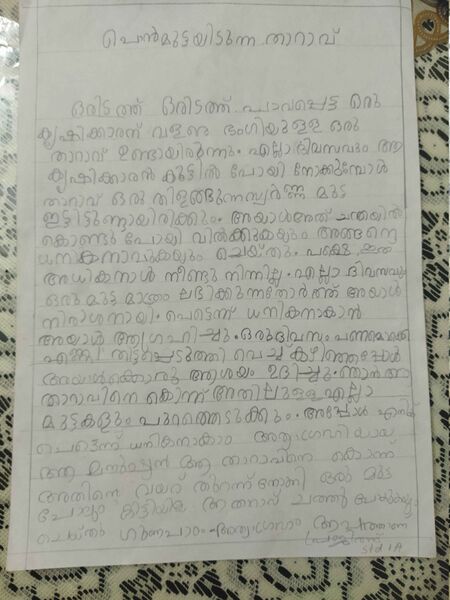 പൊൻമുട്ടയിടുന്ന താറാവ്
ഒരിടത്ത് ഒരിടത്ത് പാവപ്പെട്ട ഒരു
കൃഷിക്കാരന് വളരെ ഭംഗിയുള്ള ഒരു
താറാവ് ഉണ്ടായിരുന്നു. എല്ലാ ദിവസവും ആ
കൃഷിക്കാരൻ കൂട്ടിൽ പോയി നോക്കുമ്പോൾ
താറാവ് ഒരു തിളങ്ങുന്ന സ്വർണ്ണ മുട്ട
ഇട്ടിട്ടുണ്ടായിരിക്കും. അയാൾ അത് ചന്തയിൽ
കൊണ്ടു പോയി വിൽക്കുകയും അങ്ങനെ
ധനികനാവുകയും ചെയ്തു. പക്ഷെ, ഇത്
അധികനാൾ നീണ്ടു നിന്നില്ല. എല്ലാ ദിവസവും
ഒരു മുട്ട മാത്രം ലഭിക്കുന്നതോർത്ത് അയാൾ
നിരാശനായി. പെട്ടെന്ന് ധനികനാകാൻ
അയാൾ ആഗ്രഹിച്ചു. ഒരു ദിവസം പണമൊക്കെ
എണ്ണി തിട്ടപ്പെടുത്തി വെച്ച് കഴിഞ്ഞപ്പോൾ
അയാൾക്കൊരു ആശയം ഉദിച്ചു. ഞാൻ ആ
താറാവിനെ കൊന്ന് അതിലുള്ള എല്ലാ
മുട്ടകളും പുറത്തെടുക്കും. അപ്പോൾ എനിക്ക്
പെട്ടെന്ന് ധനികനാകാം അത്യാഗ്രഹിയായ
ആ മനുഷ്യൻ ആ താറാവിനെ കൊന്ന്
അതിന്റെ വയറ് തുറന്ന് നോക്കി ഒരു മുട്ട
പോലും കിട്ടിയില്ല താറാവ് ചത്തു പോകുകയും
ചെയ്തു ഗുണപാഠം - അത്യാഗ്രഹം ആപത്താണ്
std 1A